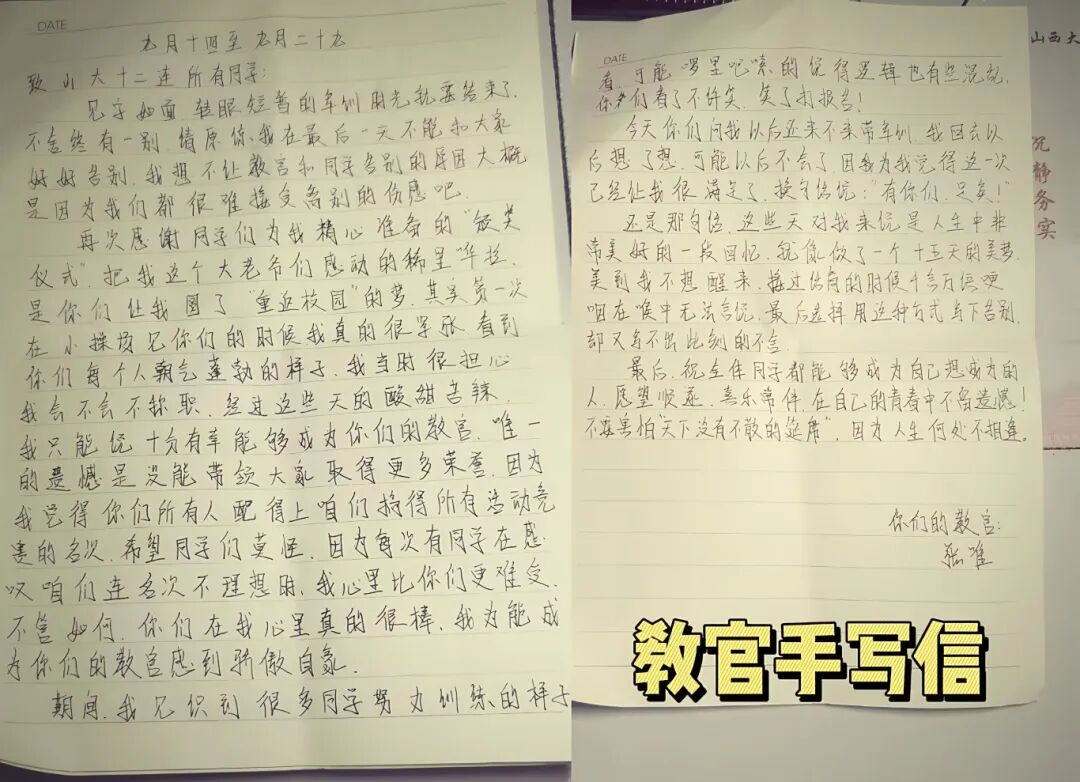 DATE
九月十四至九月二十九
致山大十二连所有同学：
见字如面，转眼短暂的军训时光就要结束了，
不舍终有一别，请原谅我在最后一天不能和大家
好好告别，我想不让教官和同学告别的原因大概
是因为我们都很难接受离别的伤感吧。
再次感谢同学们为我精心准备的“颁奖
仪式”，把我这个大老爷们感动的稀里哗啦，
是你们让我圆了“重返校园”的梦，其实第一次
在小操场见你们的时候我真的很紧张，看到
你们每个人朝气蓬勃的样子，我当时很担心
我会不会不称职，经过这些天的酸甜苦辣，
我只能说十分有幸能够成为你们的教官，唯一
的遗憾是没能带领大家取得更多荣誉，因为
我觉得你们所有人配得上咱们搞得所有活动竞
赛的名次，希望同学们莫怪，因为每次有同学在感
叹咱们连名次不理想时，我心里比你们更难受，
不管如何，你们在我心里真的很棒，我为能成
为你们的教官感到骄傲自豪。
期间，我见识到很多同学努力训练的样子
DATE
看，可能啰里吧嗦的说得逻辑也有些混乱，
你们看了不许笑，笑了打报告！
今天你们问我以后还来不来带军训，我回去以
后想了想，可能以后不会了，因为我觉得这一次
已经让我很满足了，换句话说：“有你们，足矣！”
还是那句话，这些天对我来说是人生中非
常美好的一段回忆，就像做了一个十五天的美梦，
美到我不想醒来，接过信的时候千言万语哽
咽在喉中无法言说，最后选择用这种方式写下告别，
却又写不出此刻的不舍。
最后，祝全体同学都能够成为自己想成为的
人，愿望顺遂，喜乐常伴，在自己的青春中不留遗憾！
不要害怕“天下没有不散的筵席”，因为人生何处不相逢。
你们的教官：
张准
山西大
沉静务实
教官手写信